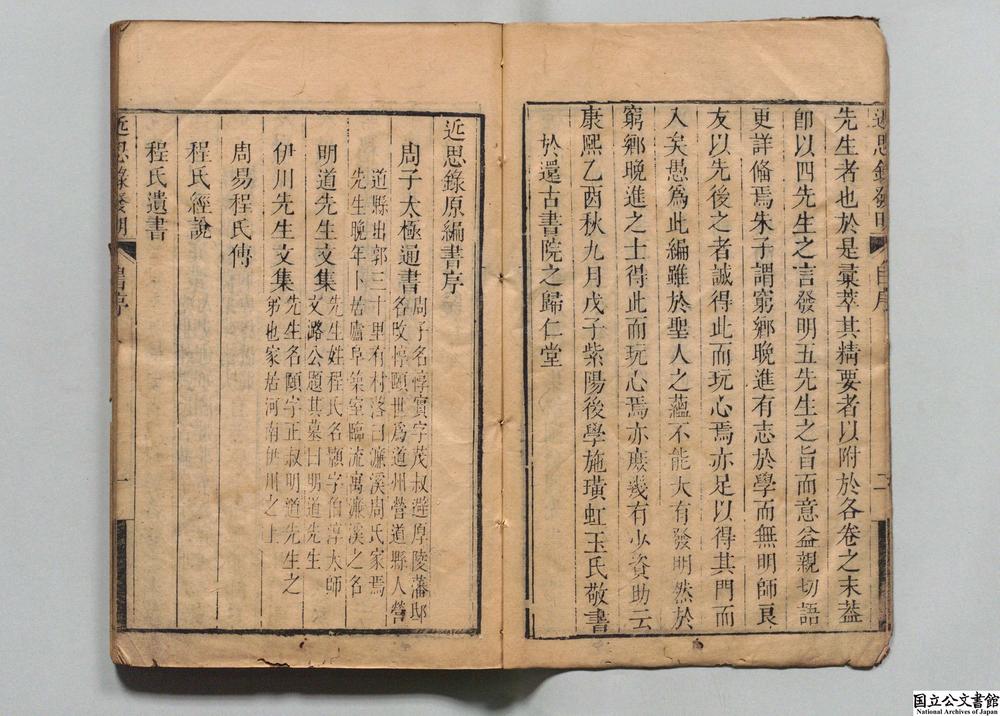 近思錄發明
自序
二
先生者也於是彚萃其精要者以附於各卷之末葢
卽以四先生之言發明五先生之旨而意益親切語
更詳備焉朱子謂窮鄉晚進有志於學而無明師良
友以先後之者誠得此而玩心焉亦足以得其門而
入矣愚爲此編雖於聖人之蘊不能大有發明然於
窮鄉晚進之士得此而玩心焉亦庶幾有少資助云
康熙乙酉秋九月戊子紫陽後學施璜虹玉氏敬書
於還古書院之歸仁堂
近思錄原編書序
周子太極通書
周子名惇實字茂叔避厚陵藩邸
名改惇頤世爲道州營道縣人營
道縣出郭三十里有村落曰濂溪周氏家焉
先生晚年卜居廬阜築室臨流寓濂溪之名
明道先生文集
先生姓程氏名顥字伯淳太師
文潞公題其墓曰明道先生
伊川先生文集
先生名頤字正叔明道先生之
弟也家居河南伊川之上
周易程氏傳
程氏經說
程氏遺書
近思錄發明
書序
一
国立公文書館
National Archives of Japan